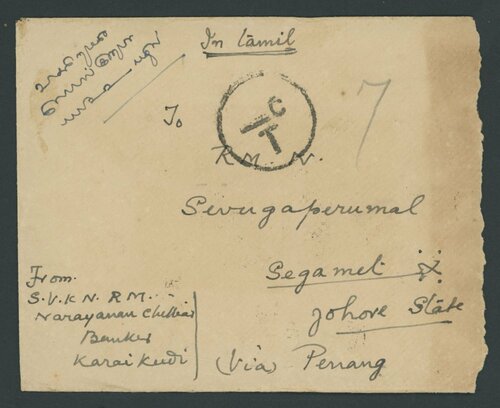 In Tamil
To
C
T
7
R M. N.
Sevugaperumal
Segamet
Johore State
(Via) Penang
From
S.V.K N. R M.
Narayanan Chettiar
Banker
Karaikudi